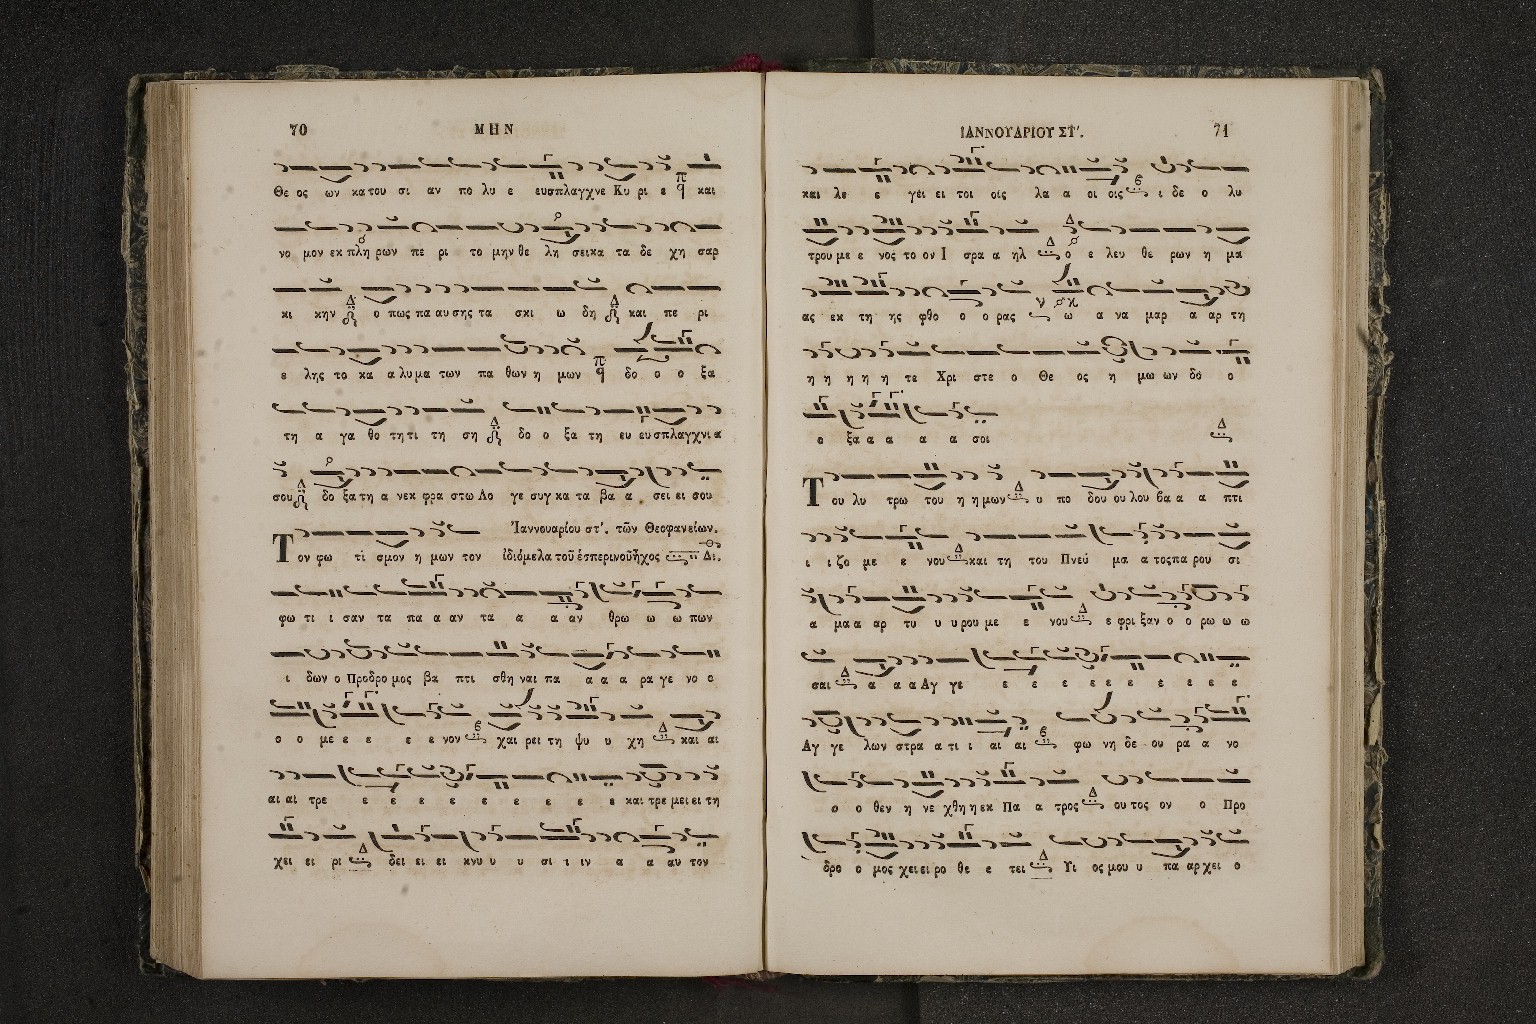 70 ΜΗΝ
Θε ος ων κατου σι αν πο λυ ε ευσπλαγχνε Κυ ρι ε και
νο μον εκ πλη ρων πε ρι το μην θε λη σεικα τα δε χη σαρ
κι κην ο πως πα αυ σης τα σκι ω δη και πε ρι
ε λης το κα α λυ μα των πα θων η μων δο ο ο ξα
τη α γα θο τη τι τη ση δο ο ξα τη ευ ευσπλαγχνι α
σου δο ξα τη α νεκ φρα στω Λο γε συγ κα τα βα α σει ει σου
Ἰαννουαρίου στ'. τῶν Θεοφανείων.
Τον φω τι σμον η μων τον ἰδιόμελα τοῦ ἑσπερινοῦ ἦχος Δι.
φω τι ι σαν τα πα α αν τα α α αν θρω ω ω πων
ι δων ο Προδρο μος βα πτι σθη ναι πα α α α ρα γε νο ο
ο ο με ε ε ε ε νον χαι ρει τη ψυ υ χη και αι
αι αι τρε ε ε ε ε ε ε ε ε ε και τρε μει ει τη
χει ει ρι δει ει ει κνυ υ υ σι ι ιν α α αυ τον
ΙΑΝΝΟΥΑΡΙΟΥ ΣΤ'. 71
και λε ε γει ει τοι οις λα α οι οις ι δε ο λυ
τρου με ε νος το ον Ι σρα α ηλ ο ε λευ θε ρων η μα
ας εκ τη ης φθο ο ο ρας ω α να μαρ α αρ τη
η η η η η τε Χρι στε ο Θε ος η μω ων δο ο
ο ξα α α α α σοι
Του λυ τρω του η η μων υ πο δου ου λου βα α α πτι
ι ι ζο με ε νου και τη του Πνεύ μα α τος πα ρου σι
α μα α αρ τυ υ υ ρου με ε νου ε φρι ξαν ο ο ρω ω ω
σαι α α α Αγ γε ε ε ε ε ε ε ε ε ε ε
Αγ γε λων στρα α τι ι αι αι φω νη δε ου ρα α νο
ο ο θεν η νε χθη η εκ Πα α τρος ου τος ον ο Προ
δρο ο μος χει ει ρο θε ε τει Υι ος μου υ πα αρ χει ο